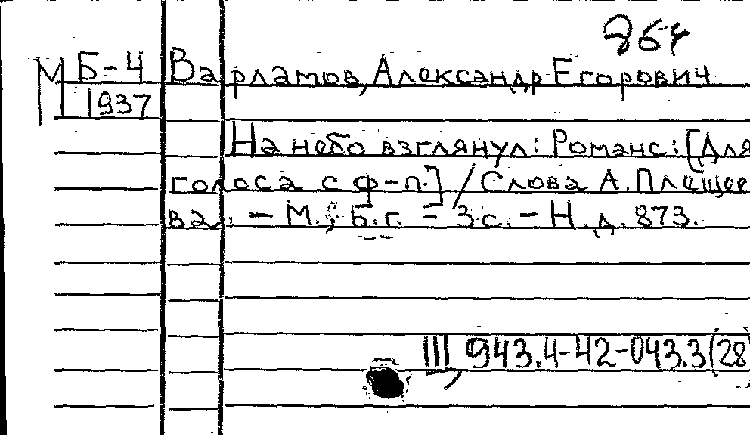 864
М Б-4 Варламов, Александр Егорович
1937
На небо взглянул: Романс: [Для
голоса с ф-п.] / Слова А. Плещее
ва. - М., Б.г. - 3 с. - Н.д. 873.
III, 943.4-42-043.3(28)